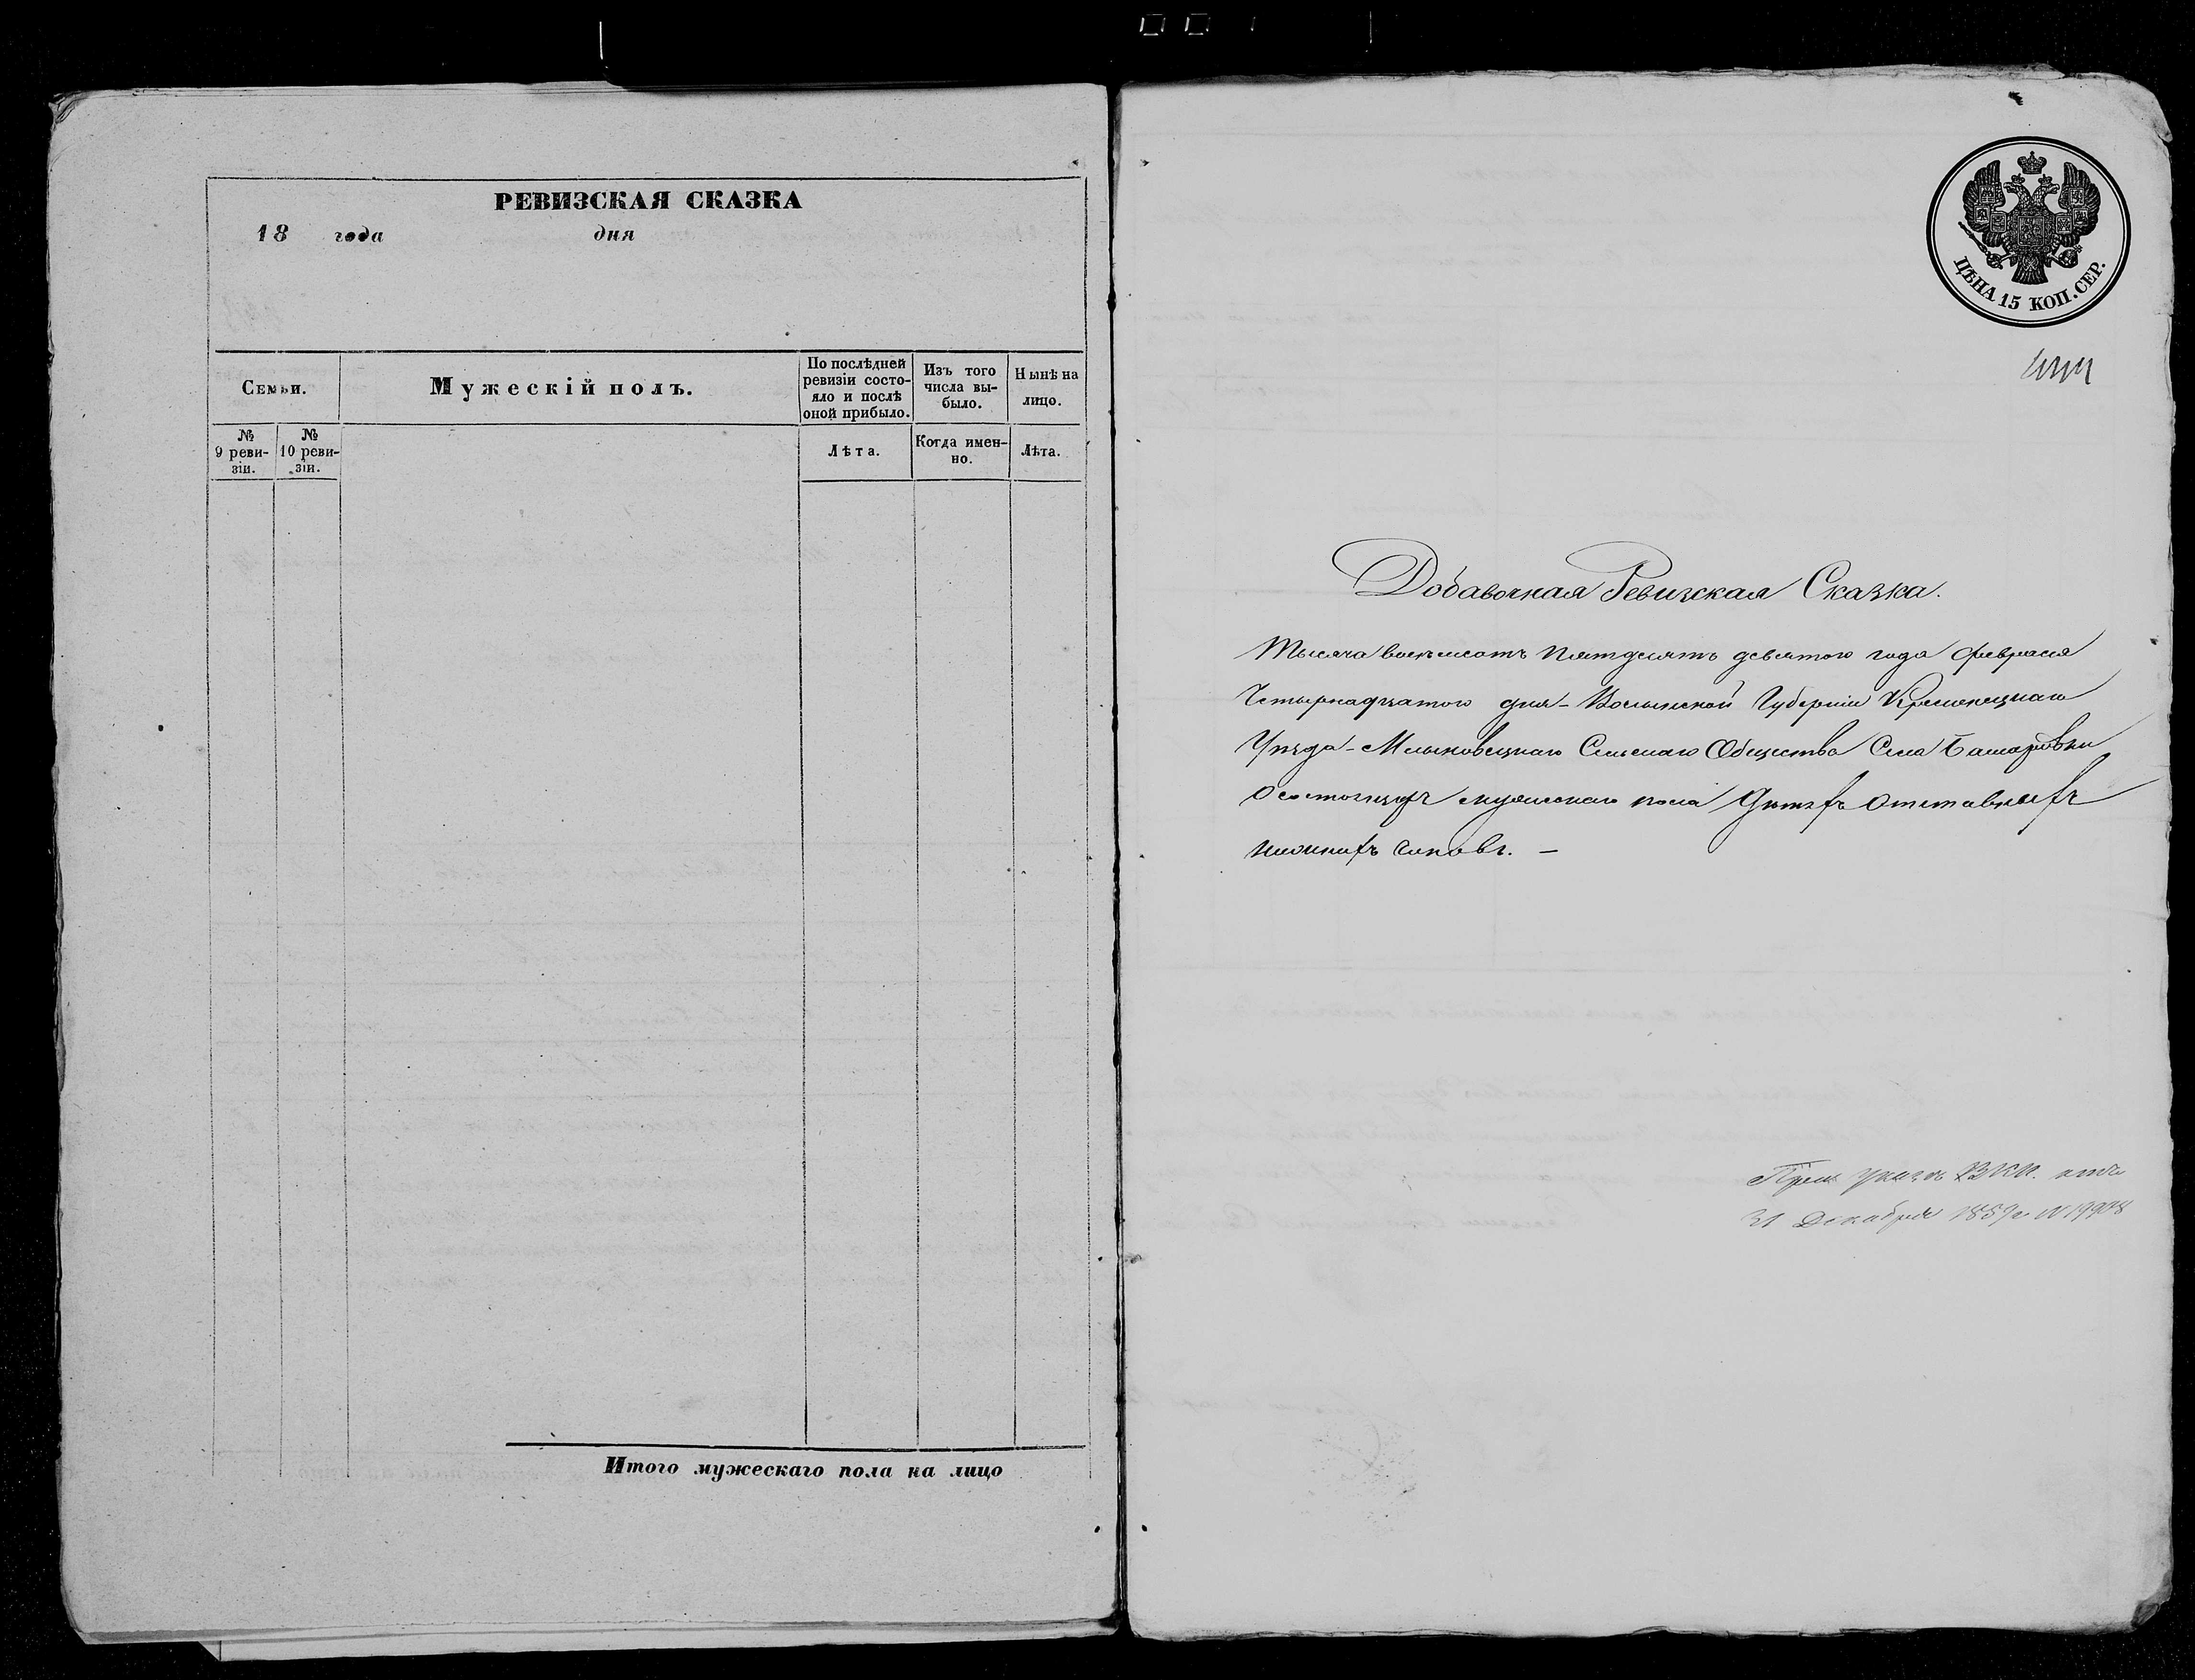 РЕВИЗСКАЯ СКАЗКА
18 года дня
Семьи.
Мужескій полъ.
По послѣдней ревизіи состо-
яло и послѣ
оной прибыло.
Изъ того
числа вы-
было.
Нынѣ на
лицо.
№
9 реви-
зіи.
№
10 реви-
зіи.
Лѣта.
Когда имен-
но.
Лѣта.
Итого мужескаго пола на лицо
ЦѢНА 15 КОП. СЕР.
Добавочная Ревизская Сказка.
Тысяча восемьсотъ пятдесятъ девятого года февраля
Четырнадцатого дня - Волынской Губерніи Кременецкаго
Уѣзда - Млыновецкаго Сельскаго Общества Села Башаровки
О состоящихъ мужескаго пола Дѣтяхъ Отставныхъ
нижнихъ чиновъ. —
При указѣ ВКП. отъ
31 Декабря 1859 г. N